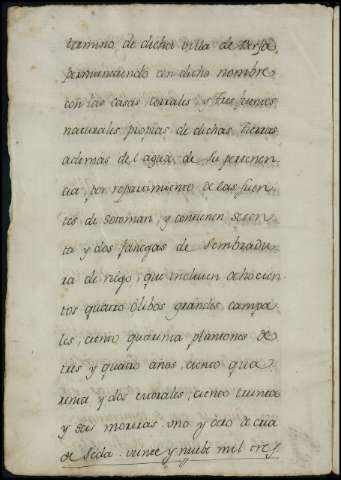 termino de dicha villa de Berja,
permaneciendo con dicho nombre
con las casas corrales, y tres fuentes
naturales propias de dichas tierras
ademas del agua, de su pertenen-
cia, por repartimiento de las fuen-
tes de y contienen secen-
ta y dos fanegas de Sembradu-
ra de riego, que incluien ochocien-
tos quatro Olibos grandes campa-
les, ciento quarenta plantones de
tres y quatro años, ciento qua-
renta y dos ciento treinta
y seis moreras. uno y otro de cria
de Seda. veinte y nuebe mil tres